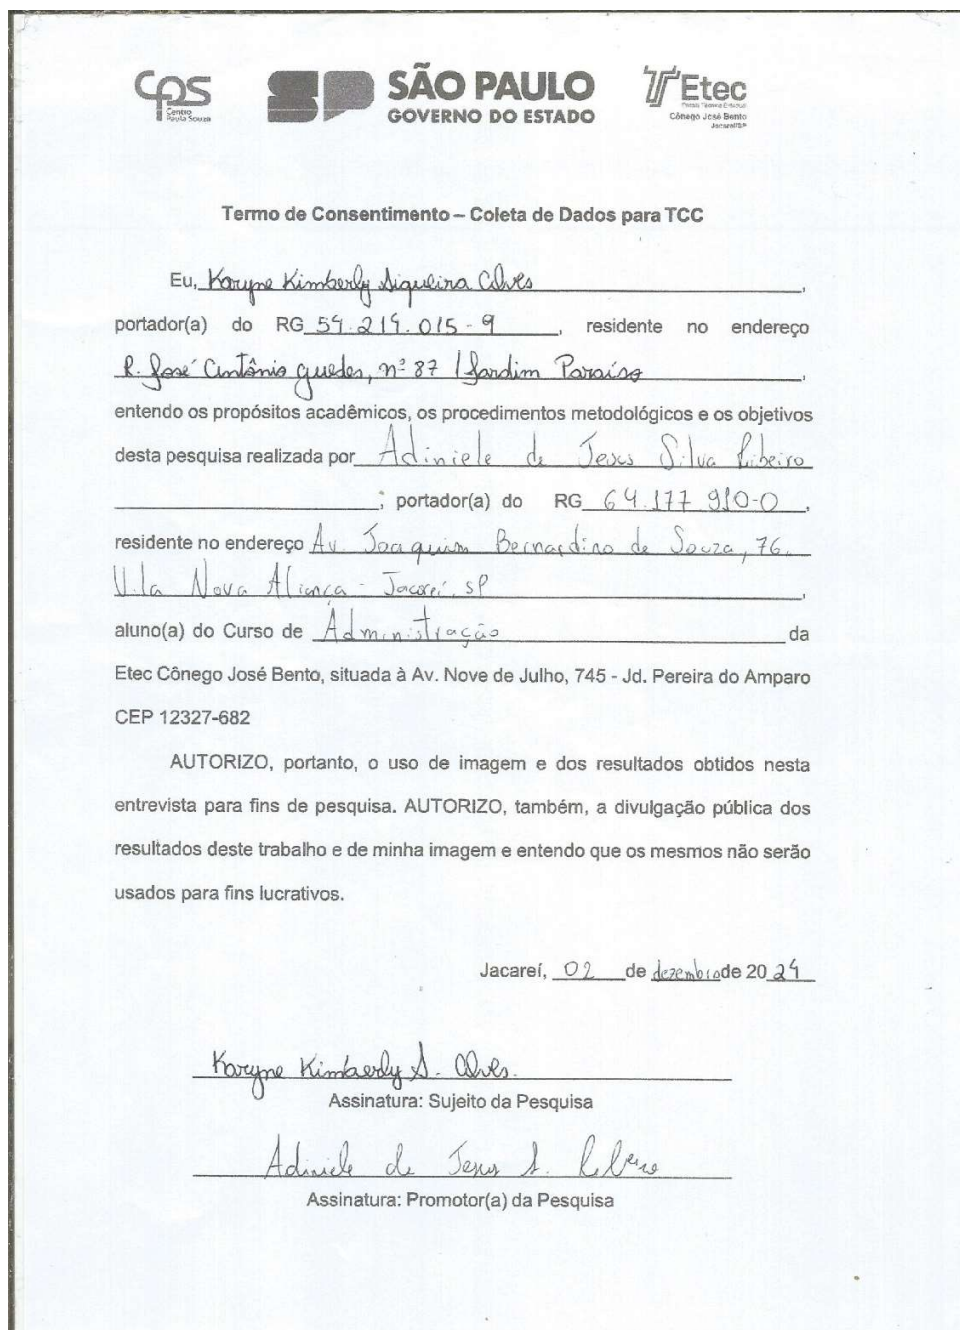 CPS
Centro
Paula Souza
SÃO PAULO
GOVERNO DO ESTADO
Etec
Cônego José Bento
Jacareí/SP
Termo de Consentimento – Coleta de Dados para TCC
Eu, Karyne Kimberly Siqueira Alves,
portador(a) do RG 59.214.015-9, residente no endereço
R. José Antônio Guedes, nº 87 / Jardim Paraíso,
entendo os propósitos acadêmicos, os procedimentos metodológicos e os objetivos
desta pesquisa realizada por Adiniele de Jesus Silva Ribeiro
; portador(a) do RG 64.177 910-0,
residente no endereço Av. Joaquim Bernardino de Souza, 76.
Vila Nova Aliança - Jacareí. SP,
aluno(a) do Curso de Administração da
Etec Cônego José Bento, situada à Av. Nove de Julho, 745 - Jd. Pereira do Amparo
CEP 12327-682
AUTORIZO, portanto, o uso de imagem e dos resultados obtidos nesta
entrevista para fins de pesquisa. AUTORIZO, também, a divulgação pública dos
resultados deste trabalho e de minha imagem e entendo que os mesmos não serão
usados para fins lucrativos.
Jacareí, 02 de dezembro de 2024
Karyne Kimberly S. Alves.
Assinatura: Sujeito da Pesquisa
Adiniele de Jesus S. Ribeiro
Assinatura: Promotor(a) da Pesquisa